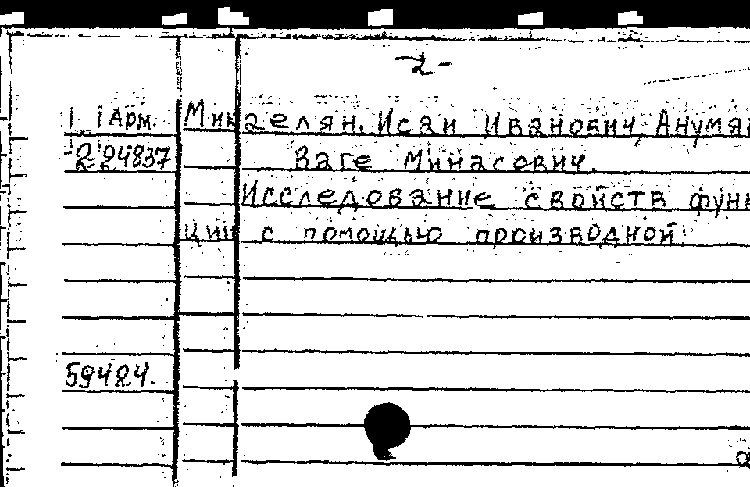 -2-
Арм. Микаелян, Исаи Иванович, Анумян
2-24837 Ваге Минасович.
Исследование свойств функ
ций с помощью производной.
59484.